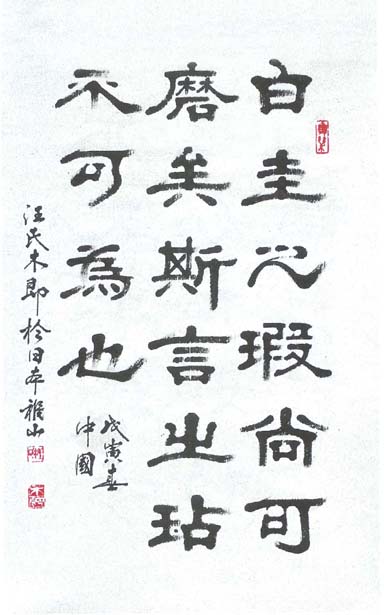 白圭之瑕尚可
磨矣斯言之玷
不可為也
戊寅春
中國
汪氏木即於日本山